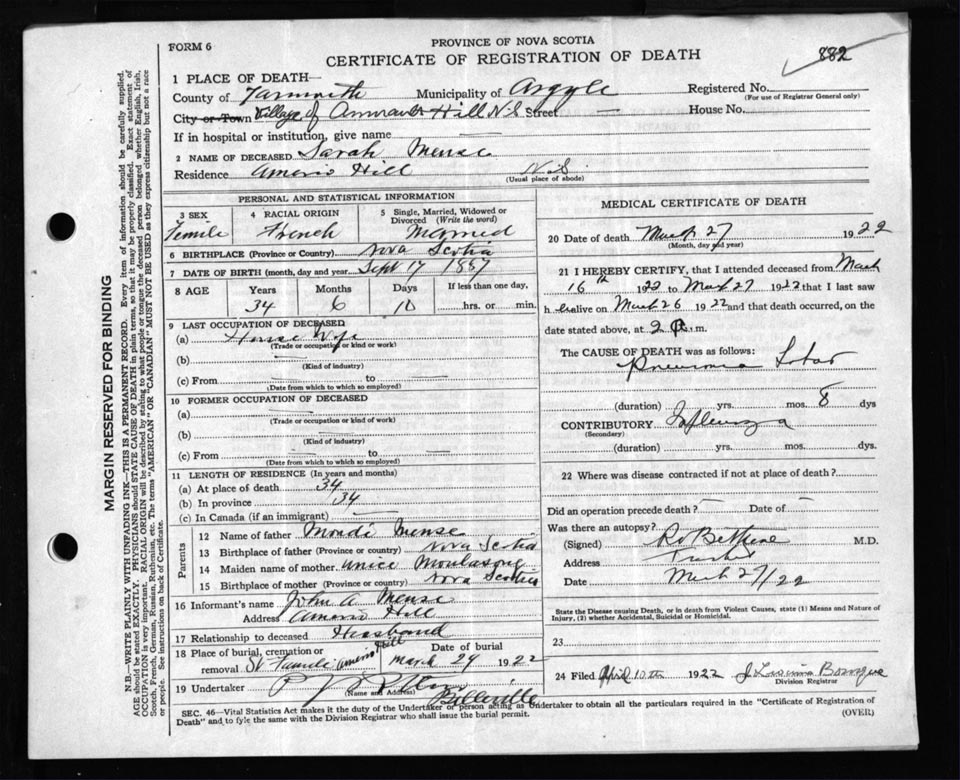 FORM 6
PROVINCE OF NOVA SCOTIA
CERTIFICATE OF REGISTRATION OF DEATH
882
1 PLACE OF DEATH—
County of Yarmouth Municipality of Argyle Registered No.
(For use of Registrar General only)
City or Town Village of Hill N.S. Street — House No.
If in hospital or institution, give name —
2 NAME OF DECEASED Sarah Mense
Residence Hill N.S.
(Usual place of abode)
PERSONAL AND STATISTICAL INFORMATION
3 SEX Female
4 RACIAL ORIGIN French
5 Single, Married, Widowed or Divorced (Write the word) Married
6 BIRTHPLACE (Province or Country) Nova Scotia
7 DATE OF BIRTH (month, day and year) Sept 17 1887
8 AGE Years Months Days If less than one day,
34 6 10 hrs. or min.
9 LAST OCCUPATION OF DECEASED
(a) House Wife
(Trade or occupation or kind or work)
(b) —
(Kind of industry)
(c) From — to —
(Date from which to which so employed)
10 FORMER OCCUPATION OF DECEASED
(a) —
(Trade or occupation or kind of work)
(b) —
(Kind of industry)
(c) From — to —
(Date from which to which so employed)
11 LENGTH OF RESIDENCE (In years and months)
(a) At place of death 34
(b) In province 34
(c) In Canada (if an immigrant) —
Parents
12 Name of father Mense
13 Birthplace of father (Province or country) Nova Scotia
14 Maiden name of mother
15 Birthplace of mother (Province or country) Nova Scotia
16 Informant's name John A Mense
Address Hill
17 Relationship to deceased Husband
18 Place of burial, cremation or removal St Hill
Date of burial March 29 1922
19 Undertaker
(Name and Address)
Belleville
MEDICAL CERTIFICATE OF DEATH
20 Date of death March 27 1922
(Month, day and year)
21 I HEREBY CERTIFY, that I attended deceased from March
16th 1922 to March 27 1922 that I last saw
h er alive on March 26 1922 and that death occurred, on the
date stated above, at 2 P.m.
The CAUSE OF DEATH was as follows:
Pneumonia Lobar
(duration) yrs. mos. 8 dys
CONTRIBUTORY Influenza
(Secondary)
(duration) yrs. mos. dys.
22 Where was disease contracted if not at place of death?
Did an operation precede death? — Date of —
Was there an autopsy?
(Signed) Bethune M.D.
Address Tusket
Date March 27/22
State the Disease causing Death, or in death from Violent Causes, state (1) Means and Nature of
Injury, (2) whether Accidental, Suicidal or Homicidal.
23
24 Filed April 10th 1922 J. Bourque
Division Registrar
SEC. 46—Vital Statistics Act makes it the duty of the Undertaker or person acting as Undertaker to obtain all the particulars required in the "Certificate of Registration of
Death" and to fyle the same with the Division Registrar who shall issue the burial permit.
(OVER)
MARGIN RESERVED FOR BINDING
N.B.—WRITE PLAINLY WITH UNFADING INK—THIS IS A PERMANENT RECORD. Every item of information should be carefully supplied.
AGE should be stated EXACTLY. PHYSICIANS should STATE CAUSE OF DEATH in plain terms, so that it may be properly classified. Exact statement of
OCCUPATION is very important. RACIAL ORIGIN will be described by stating to what people or tongue the deceased person belonged whether English, Irish,
Scotch, French, German, Russian, Ruthenian, etc. The terms "AMERICAN" OR "CANADIAN" MUST NOT BE USED as they express citizenship but not a race
or people. See instructions on back of Certificate.